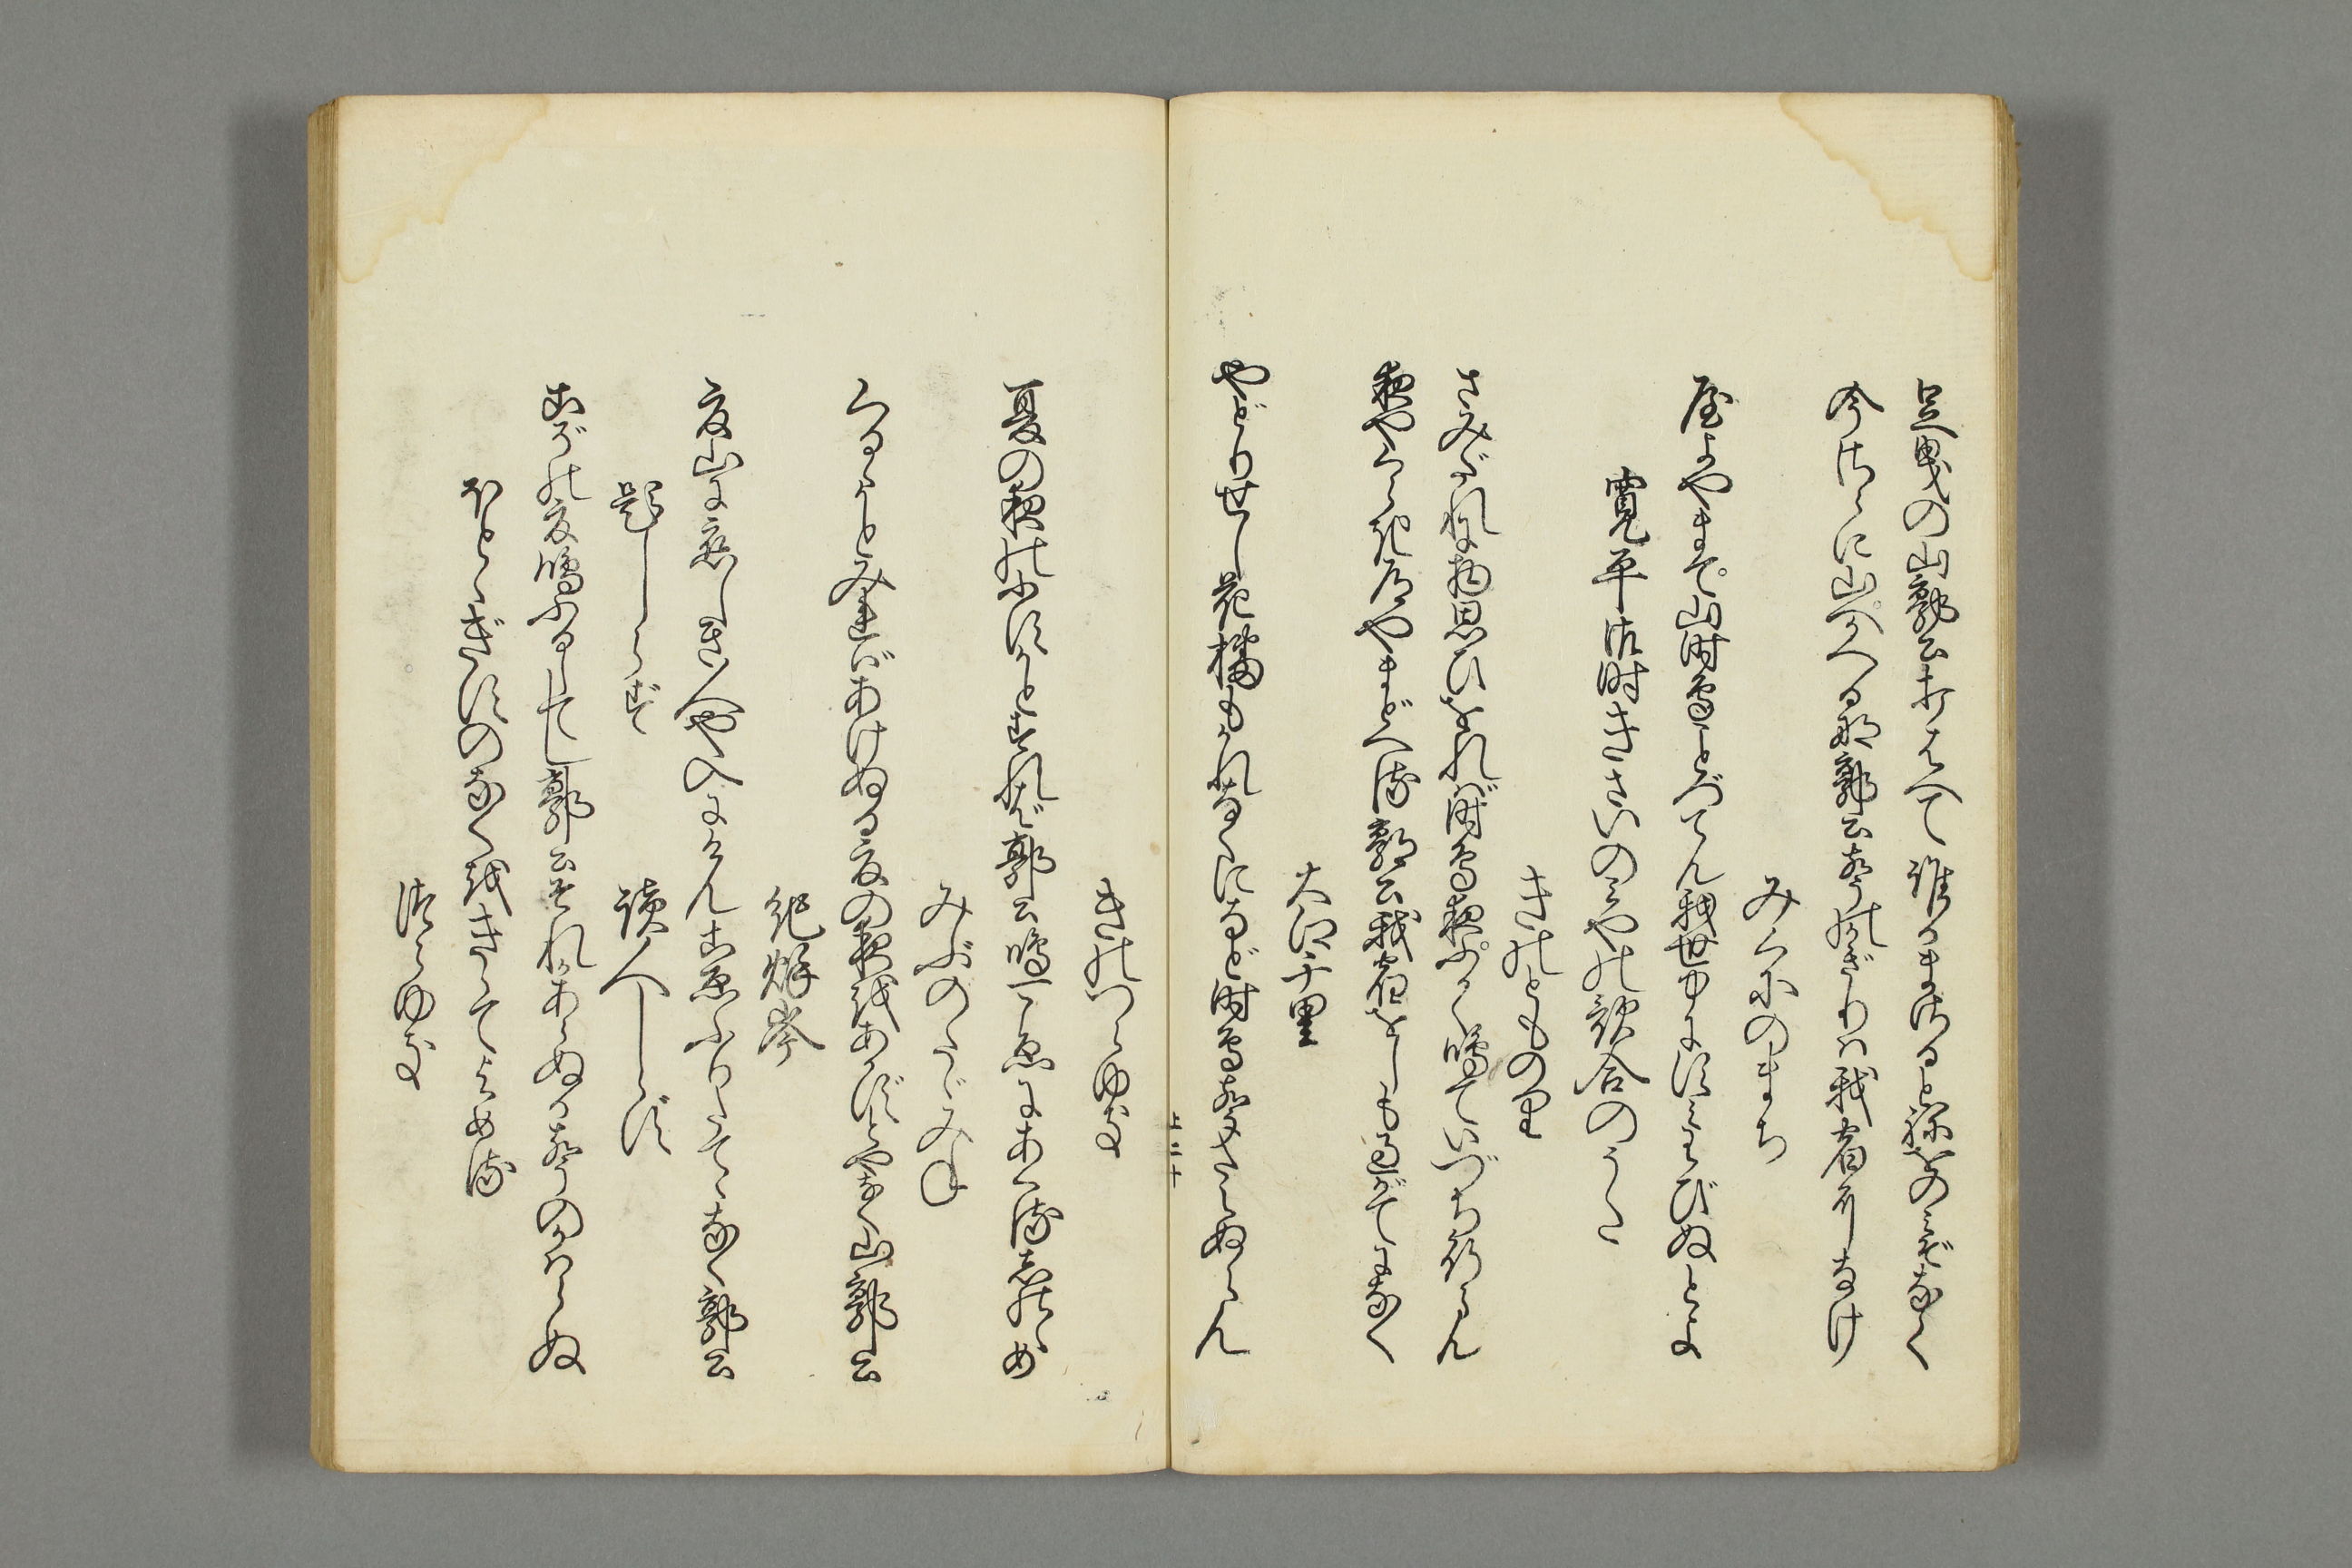 足曳の山郭公おりはへて誰かまさるとねをのみぞなく
今さらに山へかへるな郭公声のかぎりは我宿になけ
みくにのまち
やよやまて山時鳥ことづてん我世中にすみわびぬとよ
寛平御時きさいのみやの歌合のうた
きのとものり
さみだれに物思ひをれば時鳥夜ふかく鳴ていづち行らん
夜やくらき道やまどへる郭公我宿をしも過がてになく
大江千里
やどりせし花橘もかれなくになど時鳥声たえぬらん
上二十
きのつらゆき
夏の夜のふすかとすれば郭公鳴一こゑにあくるしのゝめ
みぶのたゞみね
くるゝかとみればあけぬる夏の夜をあかずとやなく山郭公
紀秋岑
夏山に恋しき人や入にけんこゑふりたてゝなく郭公
題しらず
読人しらず
こぞの夏鳴ふるしてし郭公それかあらぬか声のかはらぬ
ほとゝぎすのなくをきゝてよめる
つらゆき